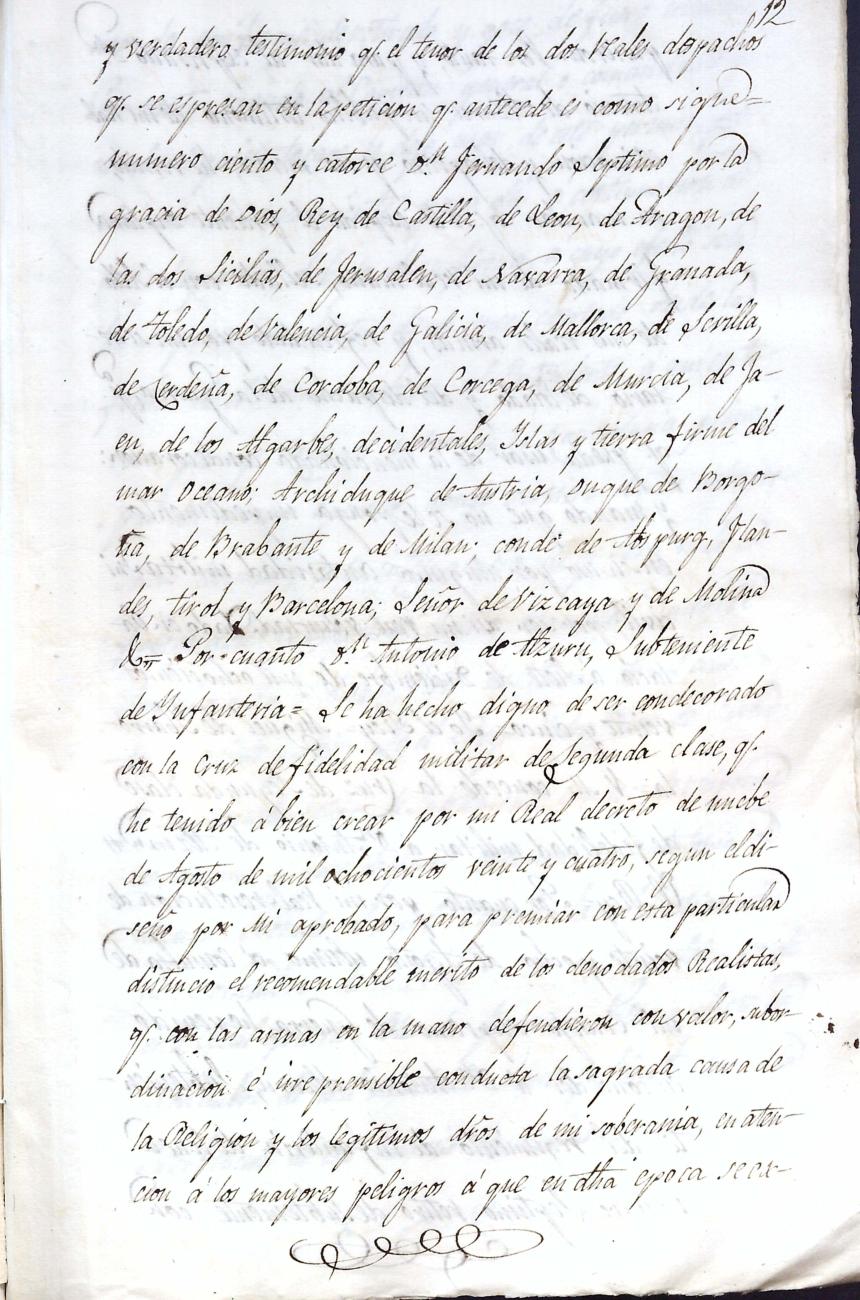 12
y verdadera testimonio q.e el tenor de los dos reales despachos
q.e se espresan en la peticion q.e antecede es como sigue=
numero ciento y catorce D.n Fernando Septimo por la
gracia de Dios, Rey de Castilla, de Leon, de Aragon, de
las dos Sicilias, de Jerusalen, de Navarra, de Granada,
de Toledo, de Valencia, de Galicia, de Mallorca, de Sevilla,
de Cerdeña, de Cordoba, de Corcega, de Murcia, de Ja-
en, de los Algarbes, Islas y tierra firme del
mar Oceano; Archiduque de Austria, Duque de Borgo-
ña, de Brabante y de Milan; conde de Abspurg, Flan-
des, tirol y Barcelona; Señor de Vizcaya y de Molina
&= Por cuanto D.n Antonio de Alzuru, Subteniente
de Ynfanteria= Se ha hecho digno de ser condecorado
con la Cruz de fidelidad militar de segunda clase, q.e
he tenido á bien crear por mi Real decreto de nuebe
de Agosto de mil ochocientos veinte y cuatro, segun el di-
seño por Mi aprobado, para premiar con esta particular
distincio el recomendable merito de los denodados Realistas,
q.e con las armas en la mano defendieron con valor, subor-
dinacion é irreprensible conducta la sagrada causa de
la Religion y los legitimos dros de mi soberania, en aten-
cion á los mayores peligros á que en dha epoca se ex-